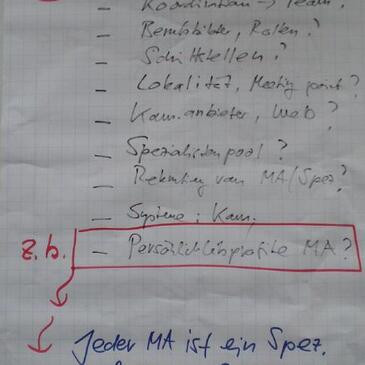 – Koordination → Team?
– Berufsbilder, Rollen?
– Schnittstellen?
– Lokalität, Meeting point?
– Kom.anbieter, Web?
– Spezialistenpool?
– Rekruting von MA/Spez?
– Systeme: Kom.
z.b. – Persönlichkeitsprofile MA?
Jeder MA ist ein Spez.